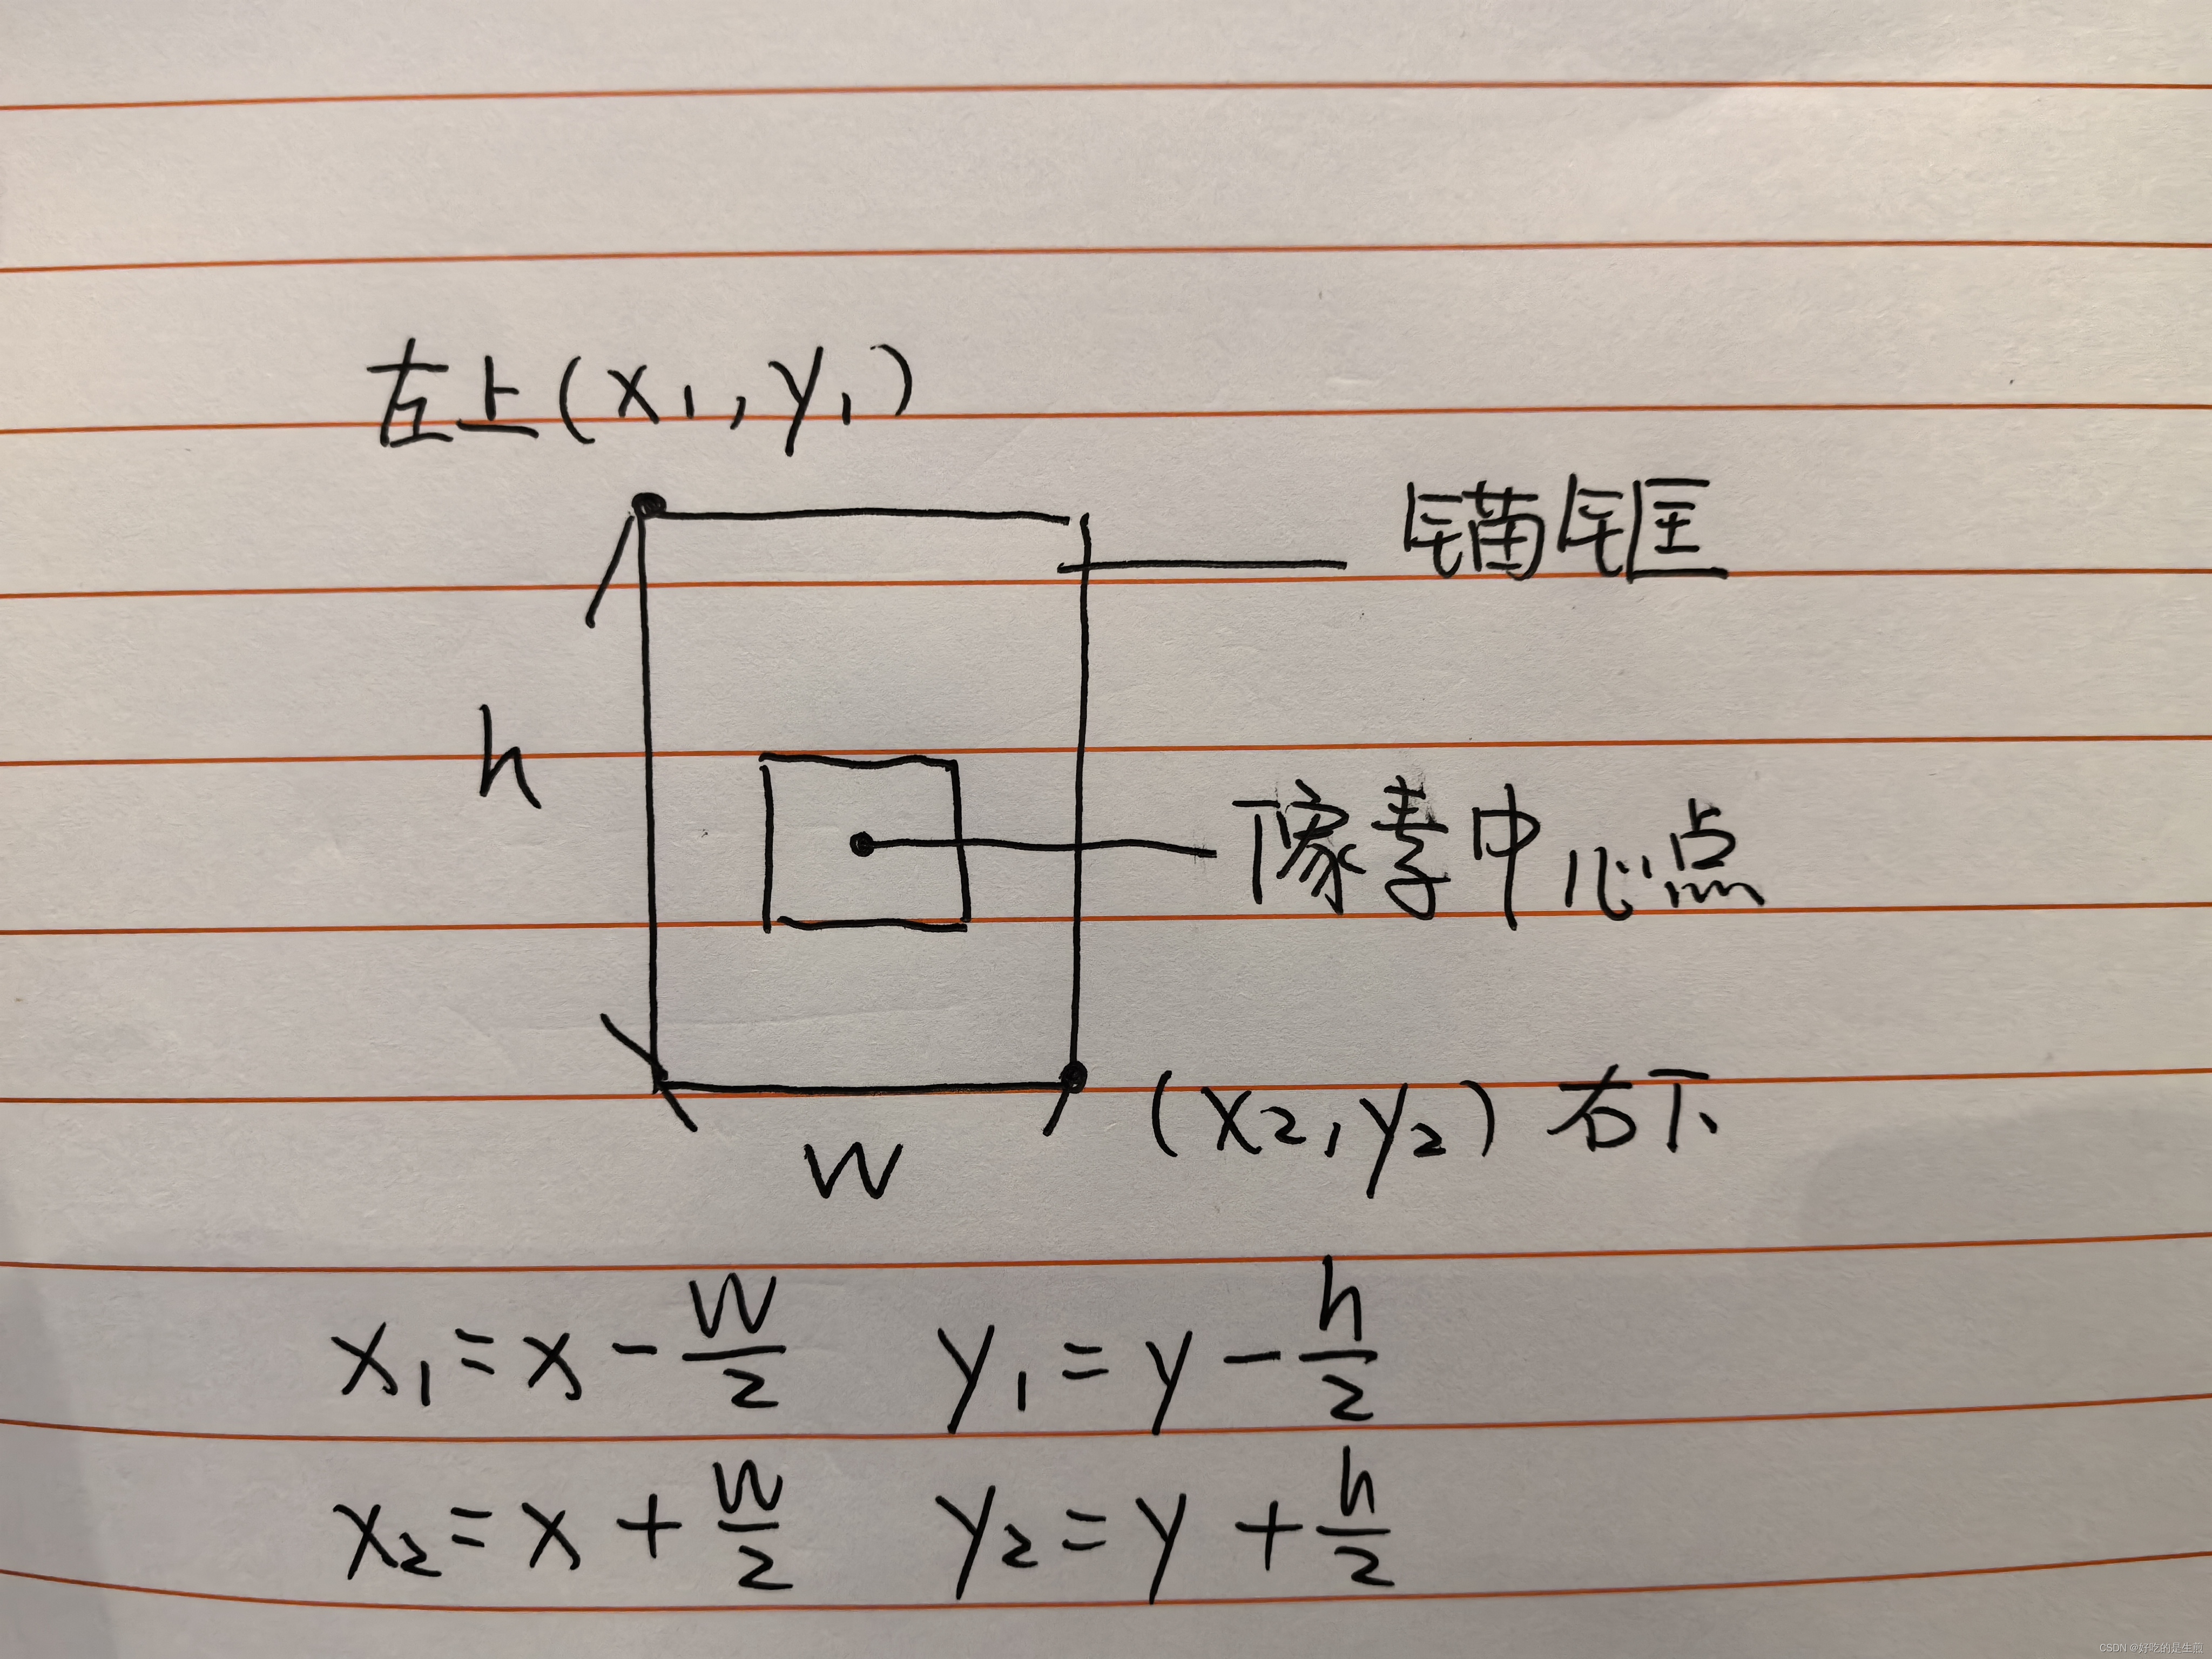 左上(x1,y1)
锚框
h
像素中心点
(x2,y2)右下
w
x1=x-w/2 y1=y-h/2
x2=x+w/2 y2=y+h/2
CSDN @好吃的是生煎